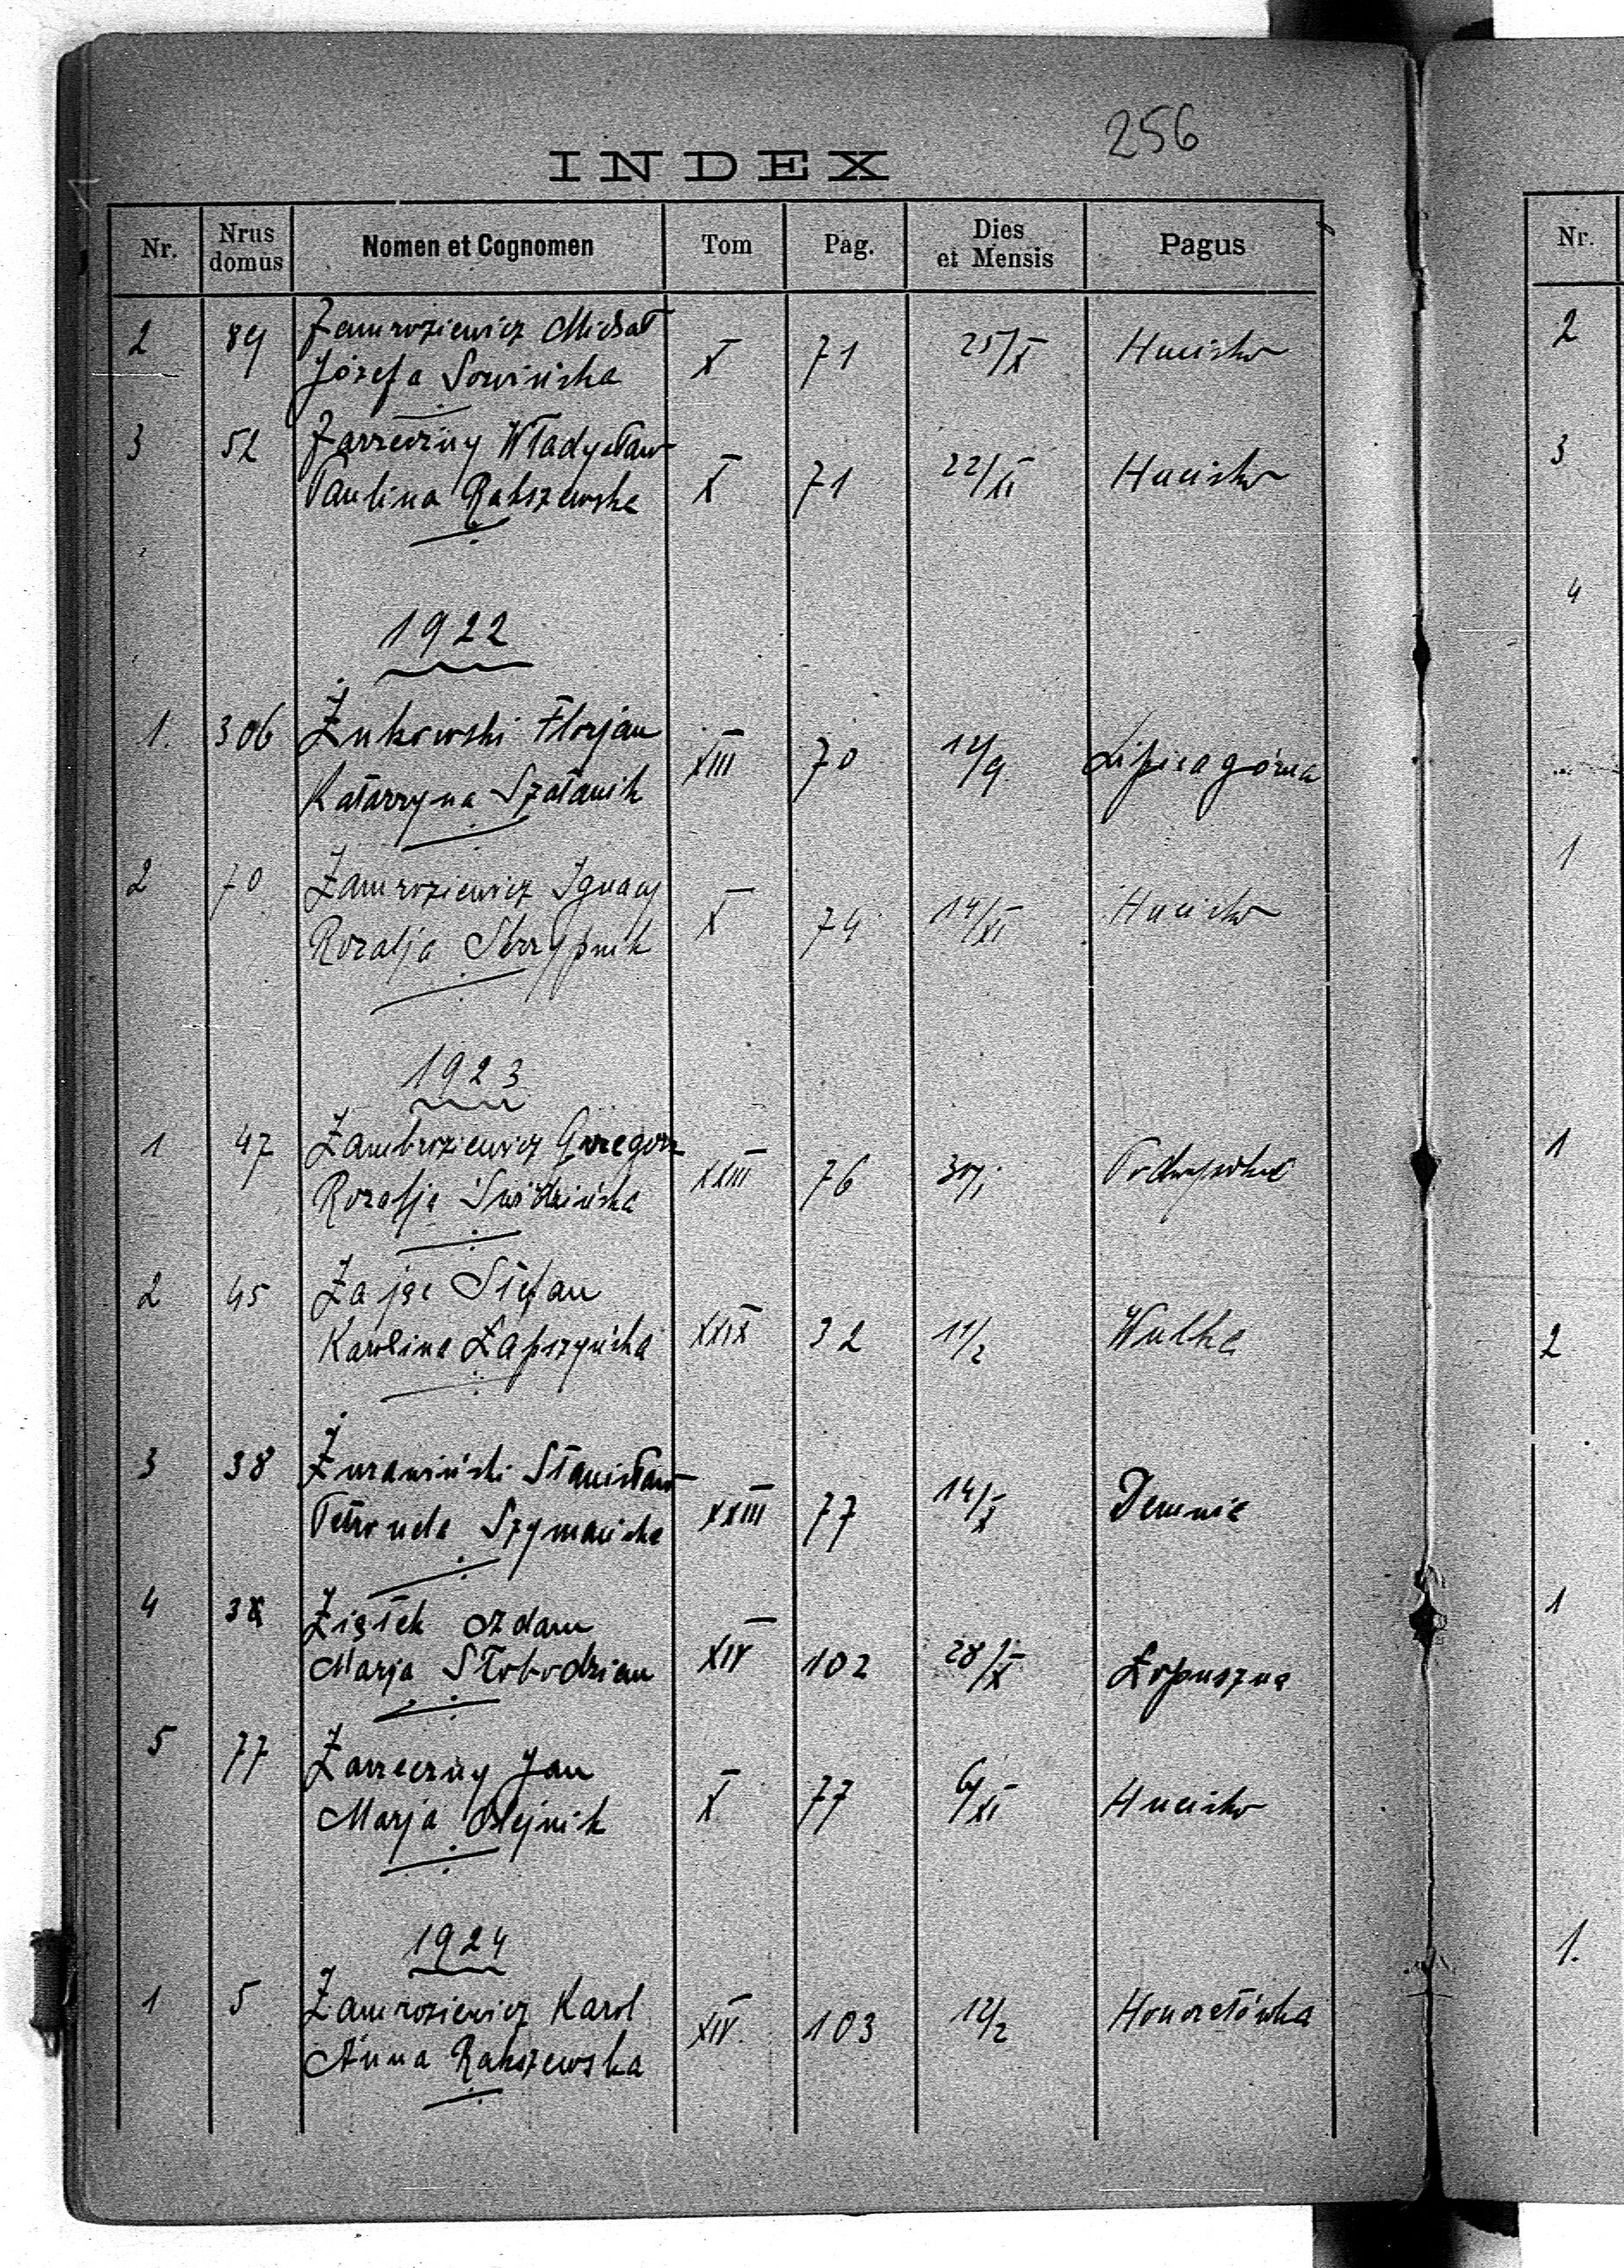 256
INDEX
Nr. Nrus domus Nomen et Cognomen Tom Pag. Dies et Mensis Pagus
2 89 Zamroziewicz Michał
Józefa Sowińska X 71 25/X Hucisko
3 52 Zarzeczny Władysław
Paulina Rakszewska X 71 22/XI Hucisko
1922
1. 306 Żukowski Florjan
Katarzyna Szatanik XIII 70 12/9 Lipica górna
2 70 Zamroziewicz Ignacy
Rozalja Skrzypnik X 74 14/XI Hucisko
1923
1 47 Zambroziewicz Grzegorz
Rozalja XXIII 76 30/1
2 45 Zając Stefan
Karolina Łapszyńska XXIX 32 11/2 Wulka
3 38 Żurawiński Stanisław
Petronela Szymańska XXIII 77 14/X Demnia
4 38 Ziątek Adam
Marja Słobodzian XIV 102 28/X Łopuszna
5 77 Zarzeczny Jan
Marja Olejnik X 77 6/XI Hucisko
1924
1 5 Zamroziewicz Karol
Anna Rakszewska XIV. 103 12/2 Honoratówka
Nr.
2
3
4
1
1
2
1
1.